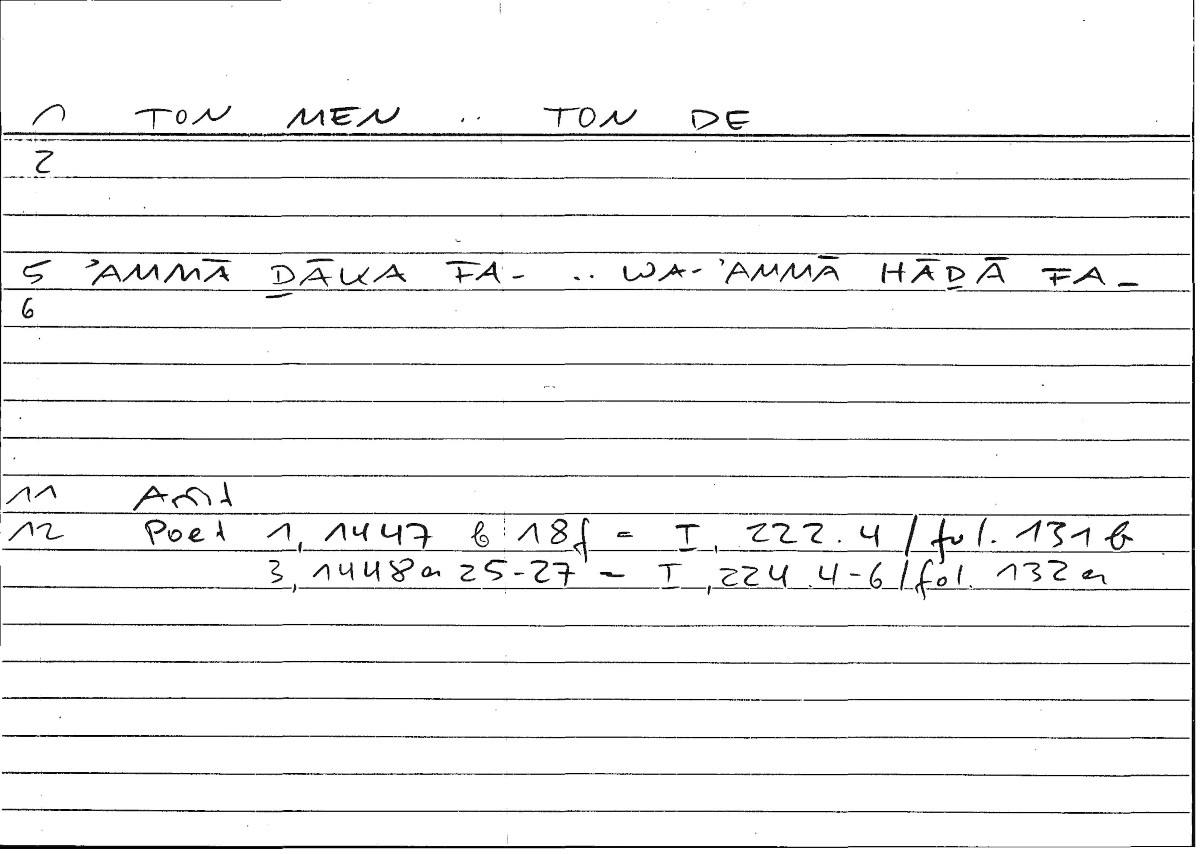 1 TON MEN .. TON DE
2
5 ʾAMMĀ ḎĀKA FA- .. WA-ʾAMMĀ HĀḎĀ FA-
6
11 Arist
12 Poet 1, 1447 b 18f = I, 222.4 / fol. 131 b
3, 1448 a 25-27 = I, 224.4-6 / fol. 132 a